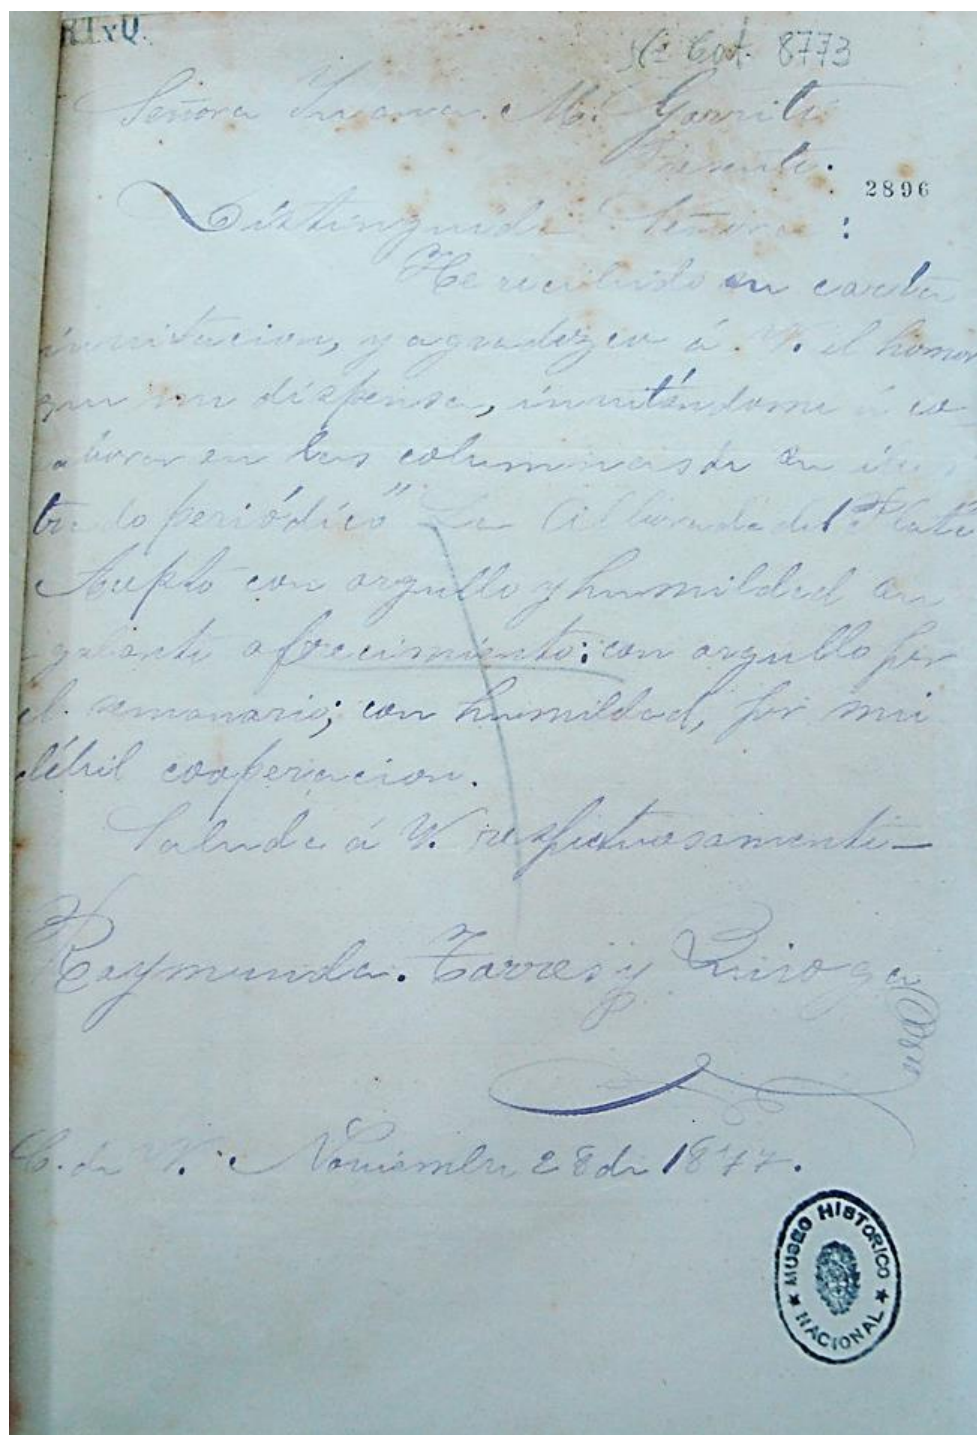 RTyQ.
Nº Cat. 8773
Señora Juana M. Gorriti
Presente.
2896
Distinguida Señora:
He recibido su carta
invitacion, y agradezco á V. el honor
que me dispensa, invitándome á co
laborar en las columnas de su ilus
trado periódico "La Alborada del Plata
Acepto con orgullo y humildad su
galante ofrecimiento: con orgullo por
el semanario; con humildad, por mi
débil cooperacion.
Saluda á V. respetuosamente—
Raymunda Torres y Quiroga
C. de V. Noviembre 28 de 1877.
MUSEO HISTORICO
NACIONAL